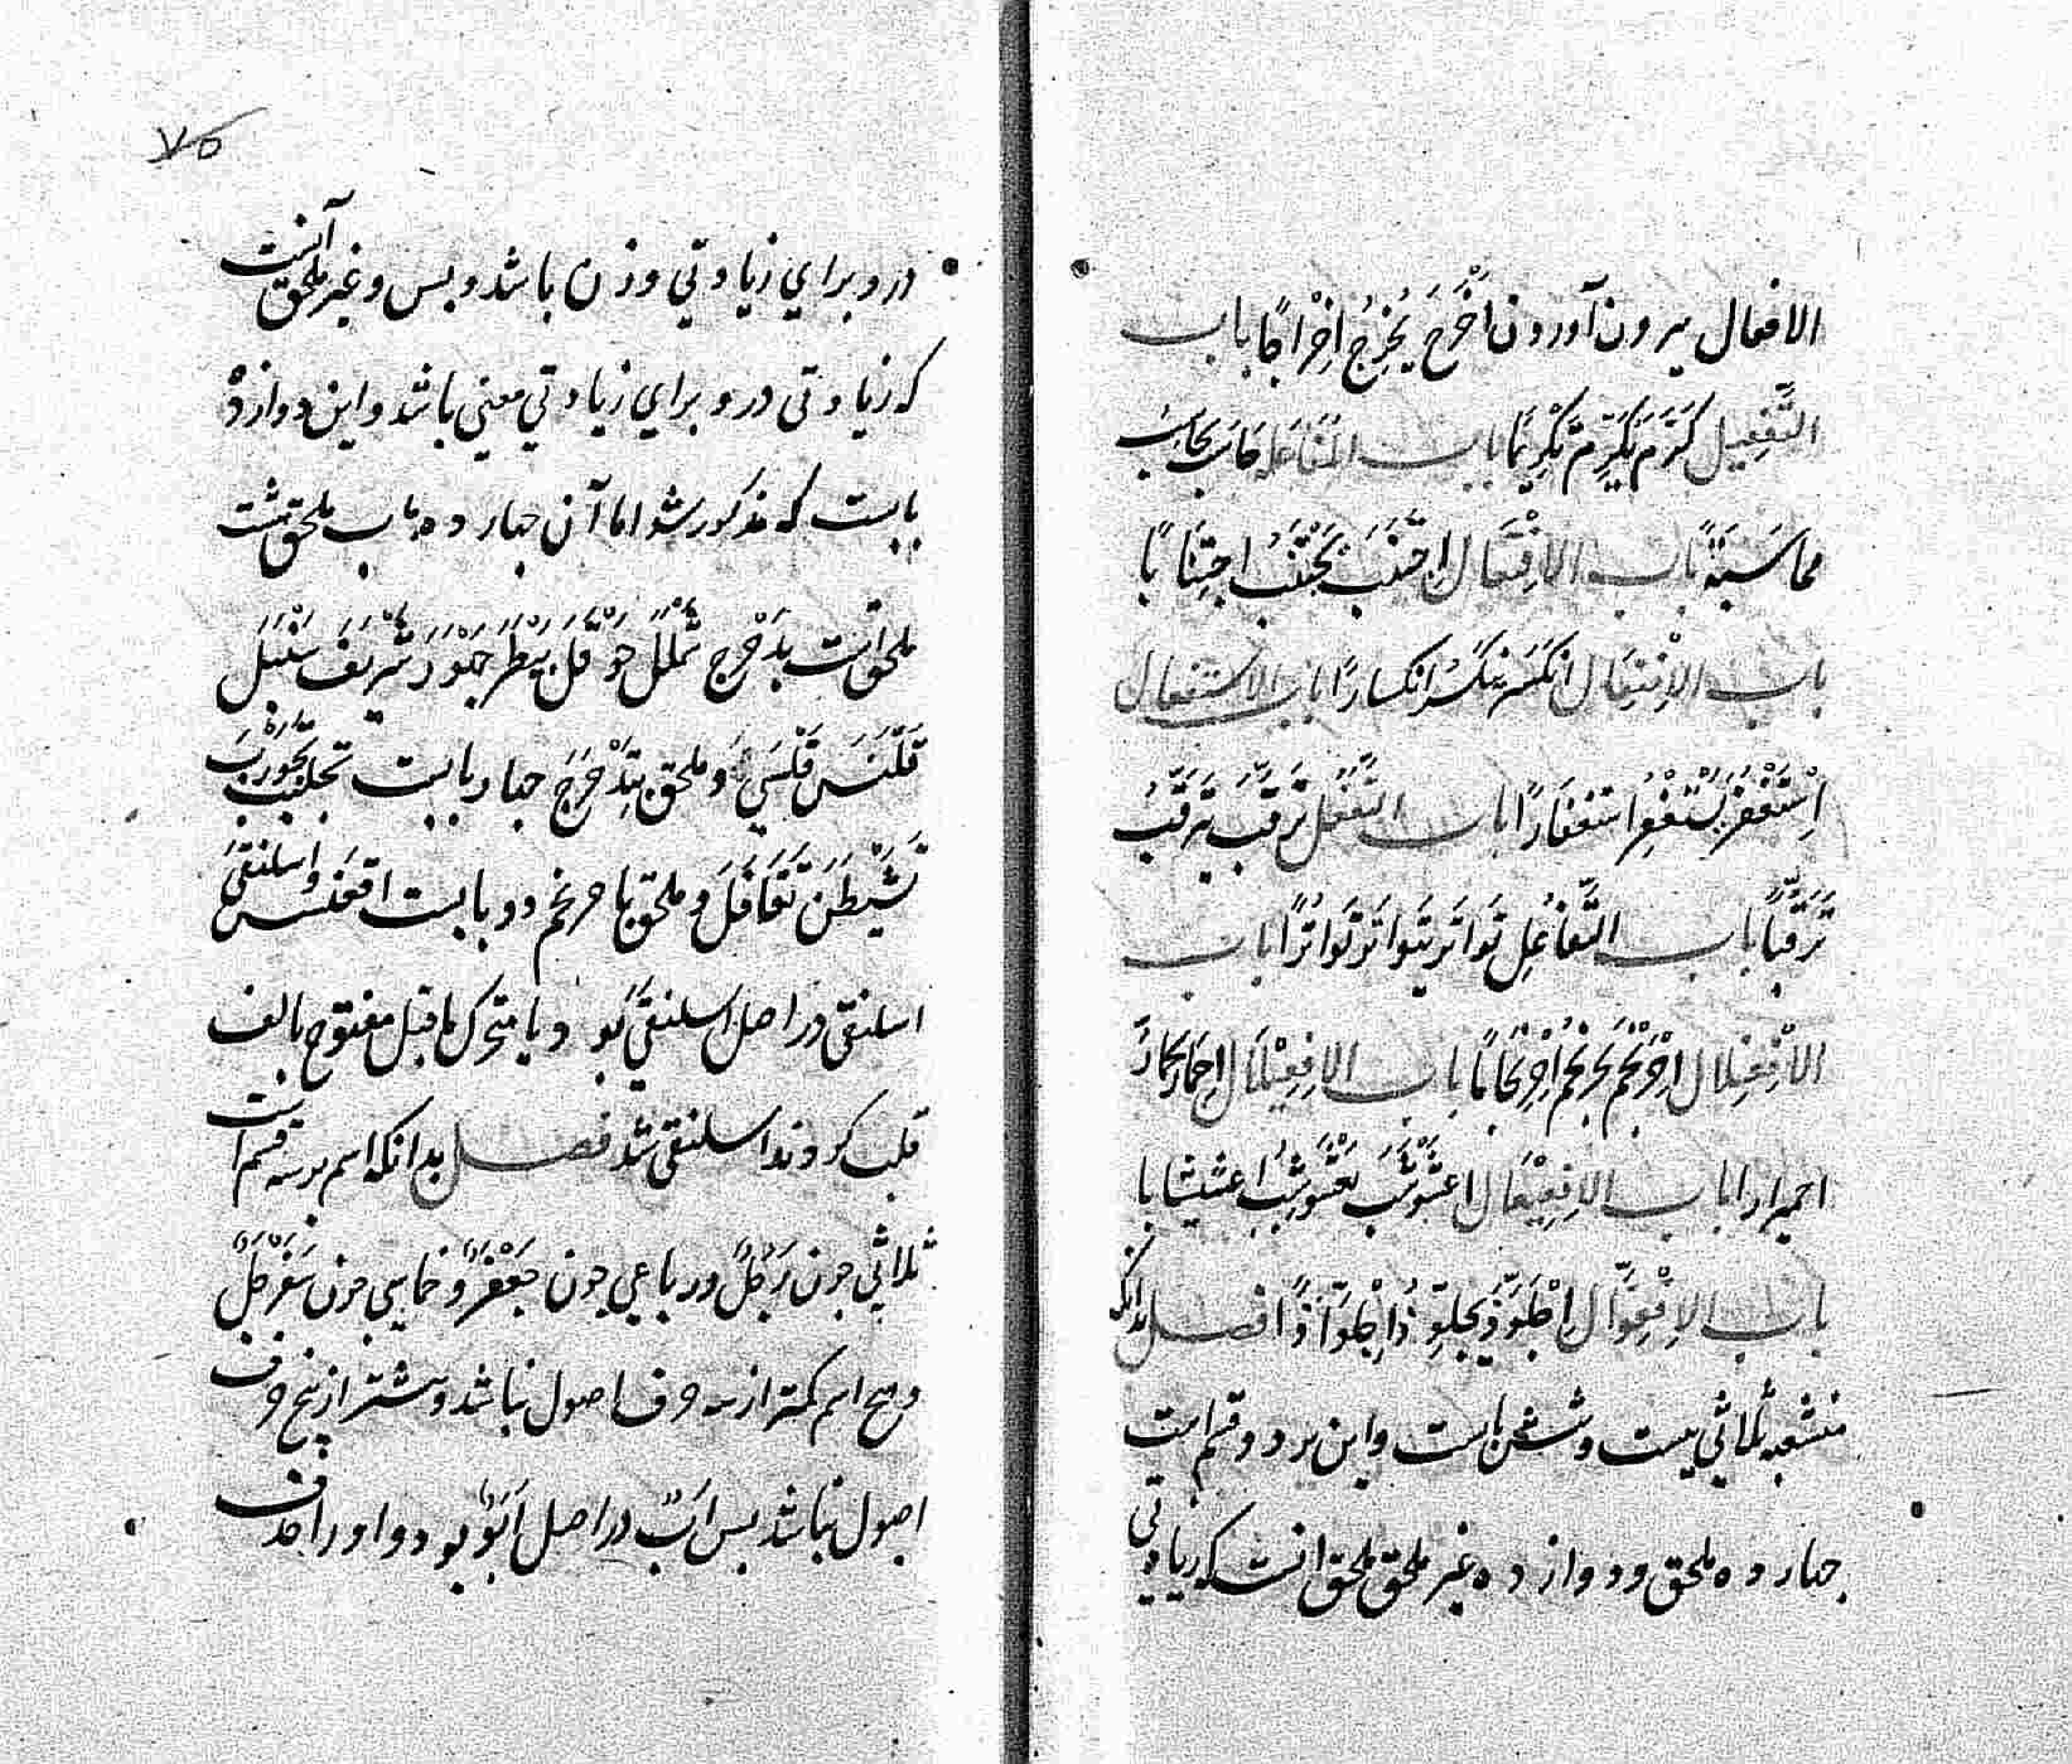 الافعال بیرون آوردن اَخْرَجَ یُخْرِجُ اِخْرَاجًا باب
التَّفْعِیل کَرَّمَ یُکَرِّمُ تَکْرِیْمًا باب المُفَاعَلة حَاسَبَ یُحَاسِبُ
محاسَبَةً باب الاِفْتِعَال اِجْتَنَبَ یَجْتَنِبُ اِجْتِنَابًا
باب الاِنْفِعَال اِنْکَسَرَ یَنْکَسِرُ اِنکسارًا باب الاستفعال
اِسْتَغْفَرَ یَسْتَغْفِرُ استغفارًا باب التَّفَعُّل تَرَقَّبَ یَتَرَقَّبُ
تَرَقُّبًا باب التَّفَاعُل تَوَاتَرَ یَتَوَاتَرُ تَوَاتُرًا باب
الاِفْعِنْلال اِحْرَنْجَمَ یَحْرَنْجِمُ اِحْرِنْجَامًا باب الاِفْعِیْلَال اِحْمَارَّ یَحْمَارُّ
احمیرارا باب الاِفْعِیْعَال اعْشَوْشَبَ یَعْشَوْشِبُ اِعْشیشابا
باب الاِفْعِوَّال اِجْلَوَّذَ یَجْلَوِّذُ اِجْلِوَّاذًا فصل بدانکه
منشعبه ثلاثی بیست وشش بابست واین بر دو قسم است
جهارده ملحق ودوازده غیر ملحق ملحق انست که زیادتی
۷۵
درو برای زیادتی وزن باشد وبس وغیر ملحق آنست
که زیادتی درو برای زیادتی معنی باشد واین دوازده
بابست که مذکور شد اما آن جهارده باب ملحق هشت
ملحق است بدَحْرَجَ شَمْلَلَ حَوْقَلَ بَیْطَرَ جَهْوَرَ شَرْیَفَ سَنْبَلَ
قَلْنَسَ قَلْسَیَ وملحق بتَدَحْرَجَ جهار بابست تجلبب تَجَوْرَبَ
تَشَیْطَنَ تَقَافَلَ وملحق باحرنجم دو بابست اقعنسس واسلنقی
اسلنقی در اصل اسلنقیَ بود یا متحرک ماقبل مفتوح بالف
قلب کردند اسلنقی شد فصل بدانکه اسم بر سه قسم است
ثلاثی جون رَجُلٌ ورباعی جون جَعْفَرٌ وخماسی جون سَفَرْجَلٌ
وهیج اسم کمتر از سه حرف اصول نباشد وبیشتر از پنج حرف
اصول نباشد بس اَبٌ در اصل اَبَوٌ بود واو را حذف